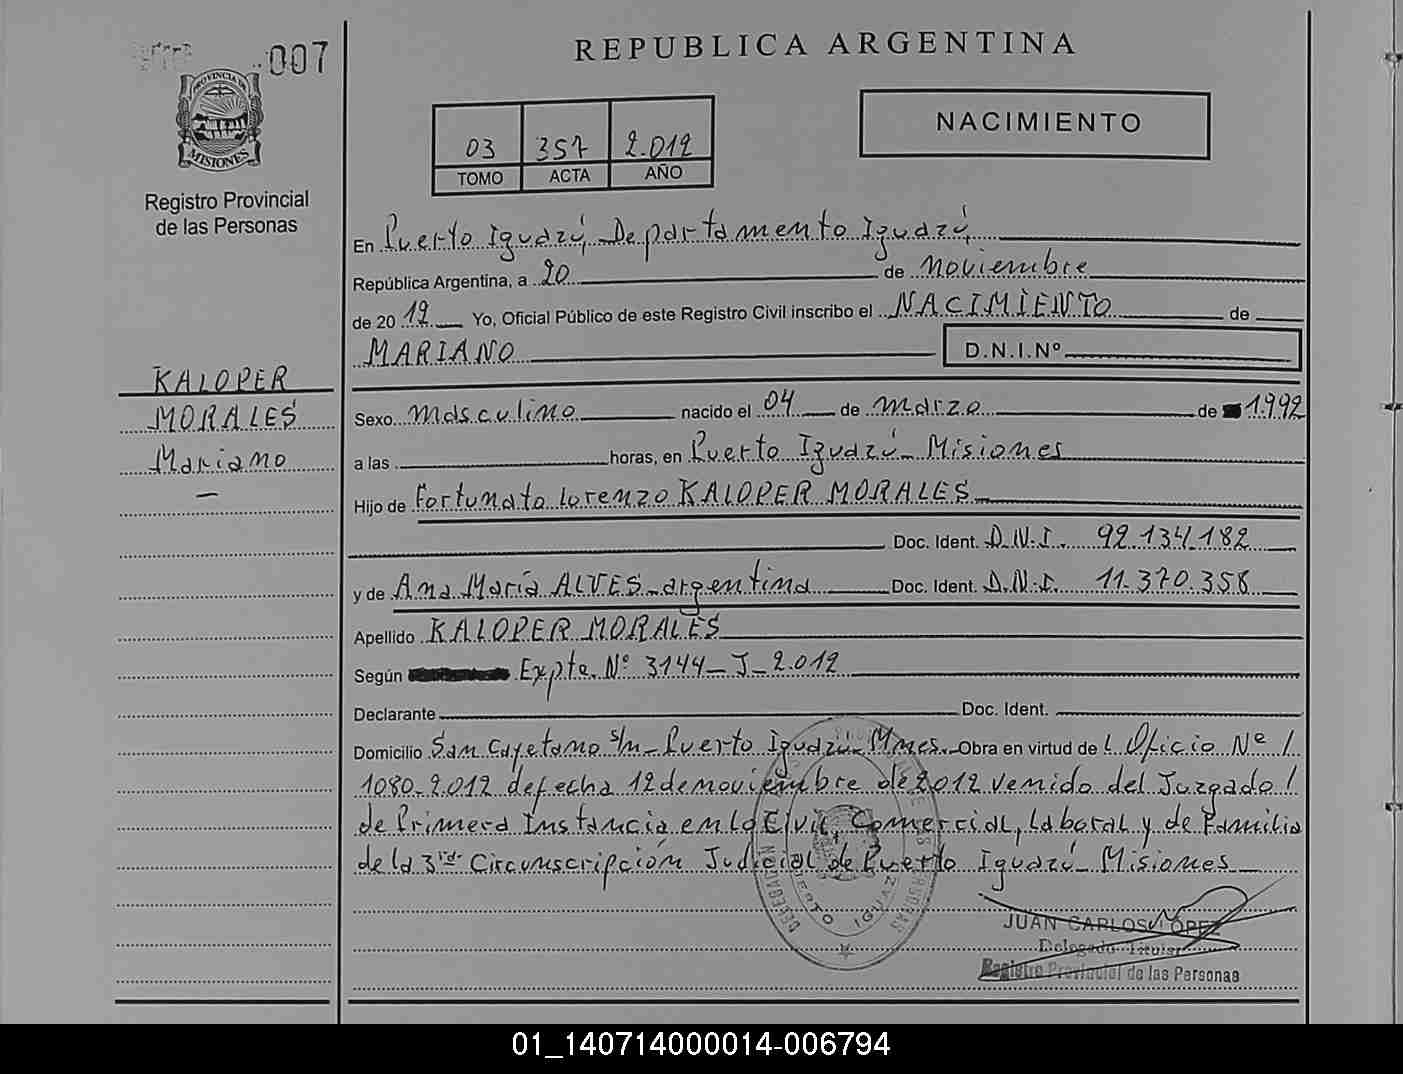 007
PROVINCIA DE
MISIONES
Registro Provincial
de las Personas
KALOPER
MORALES
Mariano
—
REPUBLICA ARGENTINA
03 357 2.012
TOMO ACTA AÑO
NACIMIENTO
En Puerto Iguazú, Departamento Iguazú,
República Argentina, a 20 de noviembre
de 2012 Yo, Oficial Público de este Registro Civil inscribo el NACIMIENTO de
MARIANO D.N.I.Nº
Sexo masculino nacido el 04 de marzo de 1992
a las horas, en Puerto Iguazú - Misiones
Hijo de Fortunato Lorenzo KALOPER MORALES
Doc. Ident. D.N.I. 92.134.182
y de Ana María ALVES - argentina Doc. Ident. D.N.I. 11.370.358
Apellido KALOPER MORALES
Según Expte. Nº 3144 - J - 2.012
Declarante Doc. Ident.
Domicilio San Cayetano s/n - Puerto Iguazú - Mnes. Obra en virtud del Oficio Nº /
1080-2.012 de fecha 12 de noviembre de 2012 venido del Juzgado /
de Primera Instancia en lo Civil, Comercial, Laboral y de Familia
de la 3ra. Circunscripción Judicial de Puerto Iguazú - Misiones
PUERTO IGUAZÚ
JUAN CARLOS LÓPEZ
Delegado Titular
Registro Provincial de las Personas
01_140714000014-006794